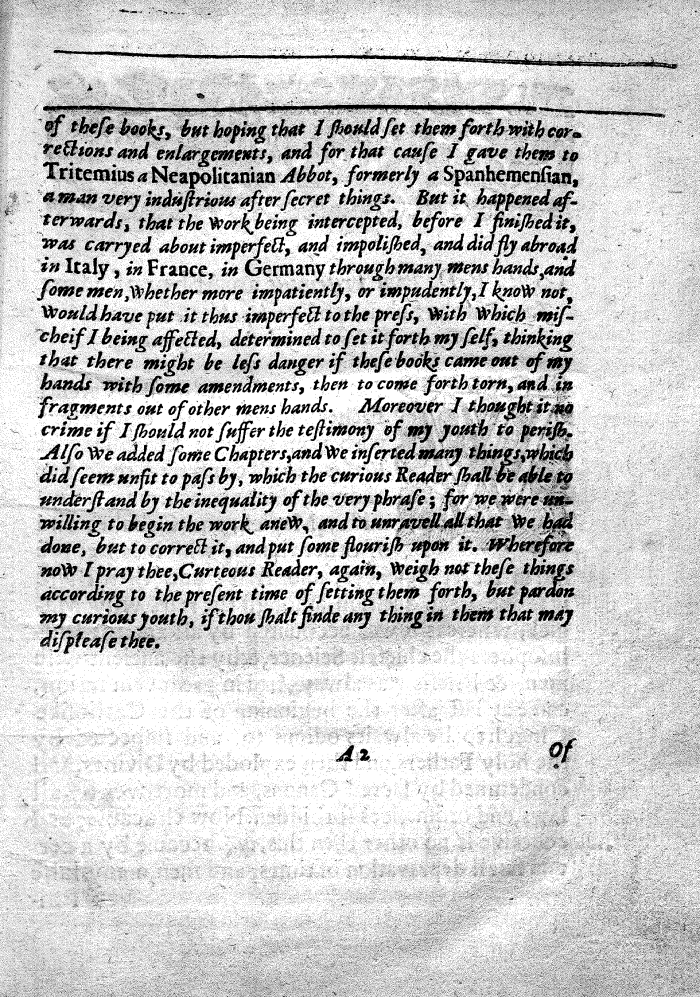 of theſe books, but hoping that I ſhould ſet them forth with cor-
rections and enlargements, and for that cauſe I gave them to
Tritemius a Neapolitanian Abbot, formerly a Spanhemenſian,
a man very induſtrious after ſecret things. But it happened af-
terwards, that the work being intercepted, before I finiſhed it,
was carryed about imperfect, and impoliſhed, and did fly abroad
in Italy, in France, in Germany through many mens hands, and
ſome men, whether more impatiently, or impudently, I know not,
would have put it thus imperfect to the preſs, with which miſ-
cheif I being affected, determined to ſet it forth my ſelf, thinking
that there might be leſs danger if theſe books came out of my
hands with ſome amendments, then to come forth torn, and in
fragments out of other mens hands. Moreover I thought it no
crime if I ſhould not ſuffer the teſtimony of my youth to periſh.
Alſo we added ſome Chapters, and we inſerted many things, which
did ſeem unfit to paſs by, which the curious Reader ſhall be able to
underſtand by the inequality of the very phraſe; for we were un-
willing to begin the work anew, and to unravell all that we had
done, but to correct it, and put ſome flouriſh upon it. Wherefore
now I pray thee, Curteous Reader, again, weigh not theſe things
according to the preſent time of ſetting them forth, but pardon
my curious youth, if thou ſhalt finde any thing in them that may
diſpleaſe thee.
A 2 Of